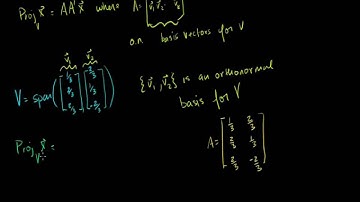 Proj_V x⃗ = AAᵀx⃗ where A = [v⃗₁ v⃗₂ v⃗ₖ]
o.n basis vectors for V
v⃗₁ v⃗₂
V = span([1/3 2/3 2/3] [2/3 1/3 -2/3])
{v⃗₁, v⃗₂} is an orthonormal
basis for V
A = [1/3 2/3
2/3 1/3
2/3 -2/3]
Proj_V x⃗ =